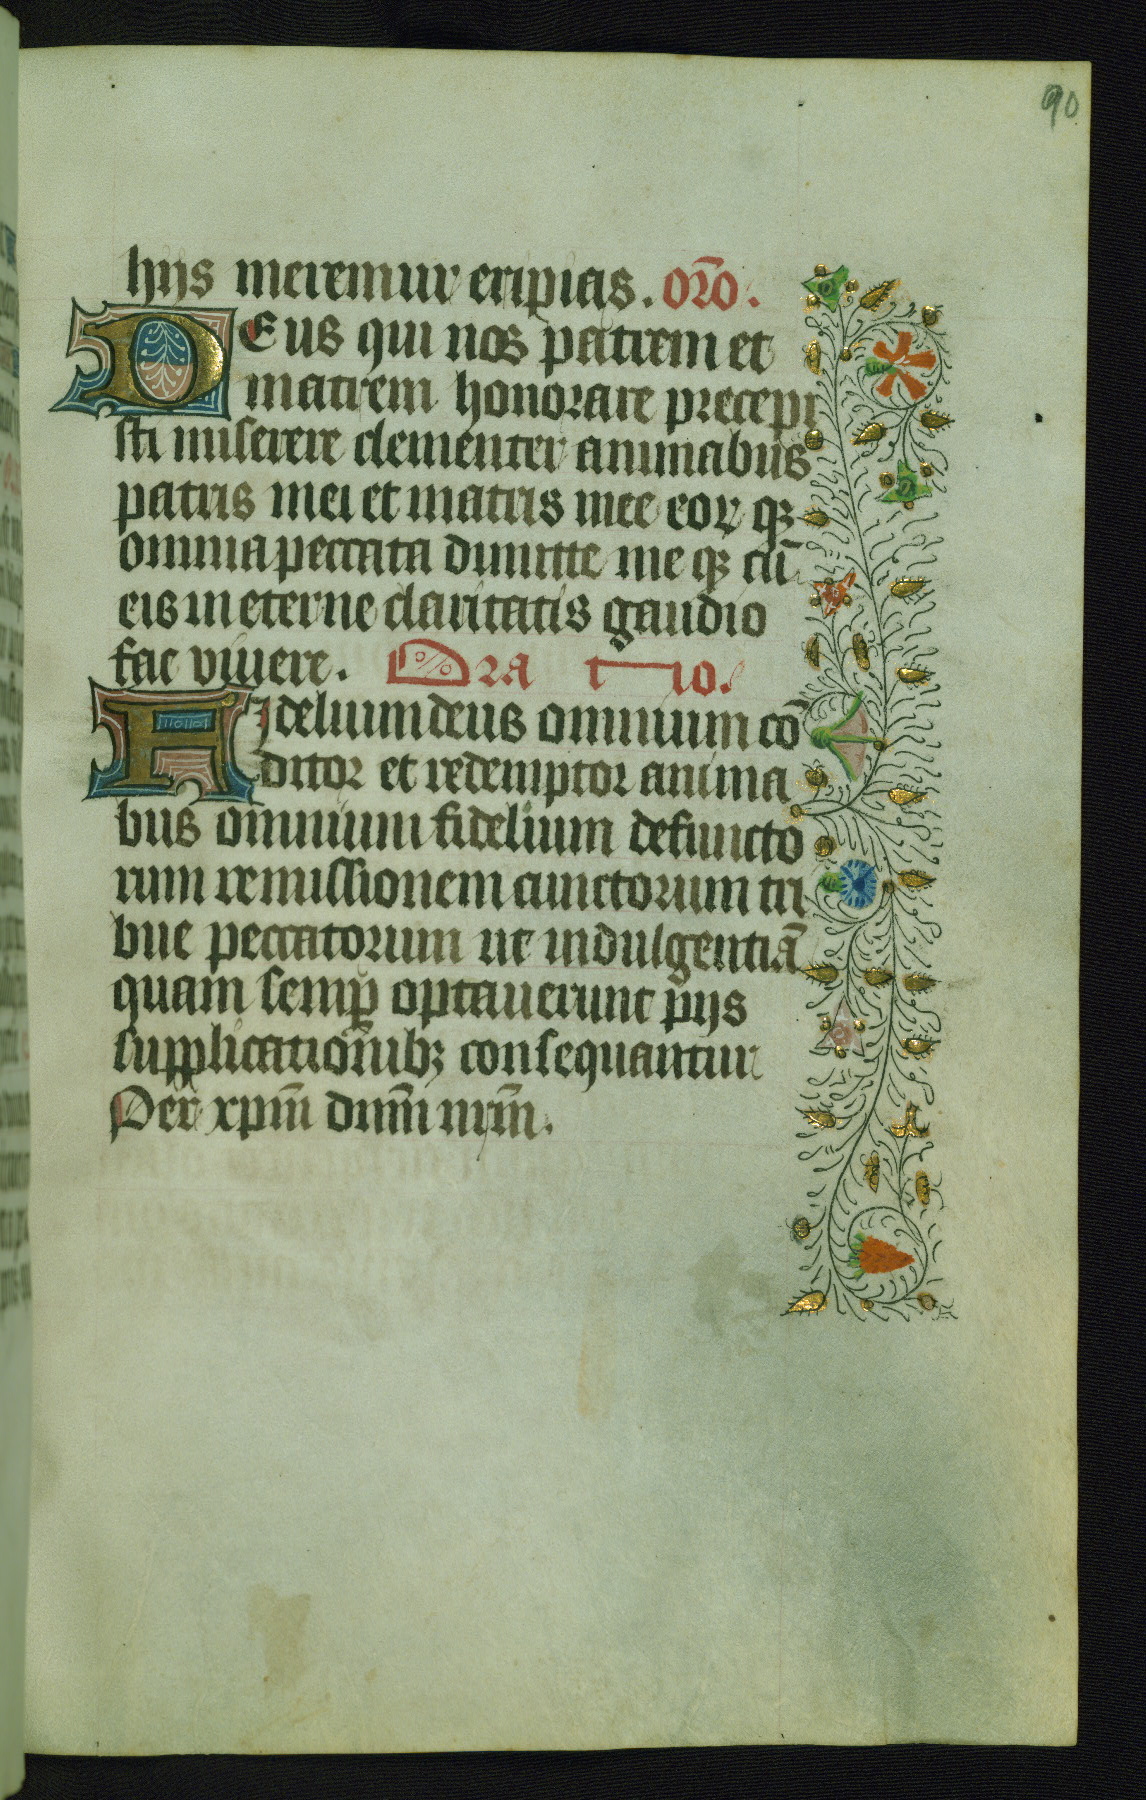 90
hijs meremur eripias. oro.
Deus qui nos patrem et
matrem honorare precepi
sti miserere clementer animabus
patris mei et matris mee eoꝝ qꝫ
omnia peccata dimitte me qꝫ cū
eis in eterne claritatis gaudio
fac viuere. Ora tio.
Fidelium deus omnium cō
ditor et redemptor anima
bus omnium fidelium defuncto
rum remissionem cunctorum tri
bue peccatorum ut indulgentiā
quam semp̄ optauerunt pijs
supplicationibꝫ consequantur
Per xp̄m dnm̄ nrm̄.